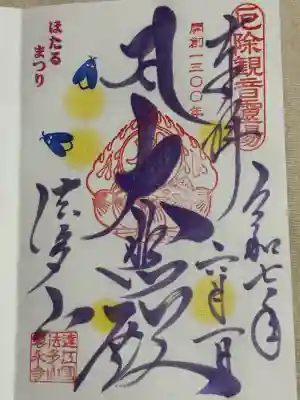 厄除観音霊場
開創一三〇〇年
奉拝
令和七年
六月一日
大悲殿
法多山
ほたる
まつり
遠江国
法多山
尊永寺